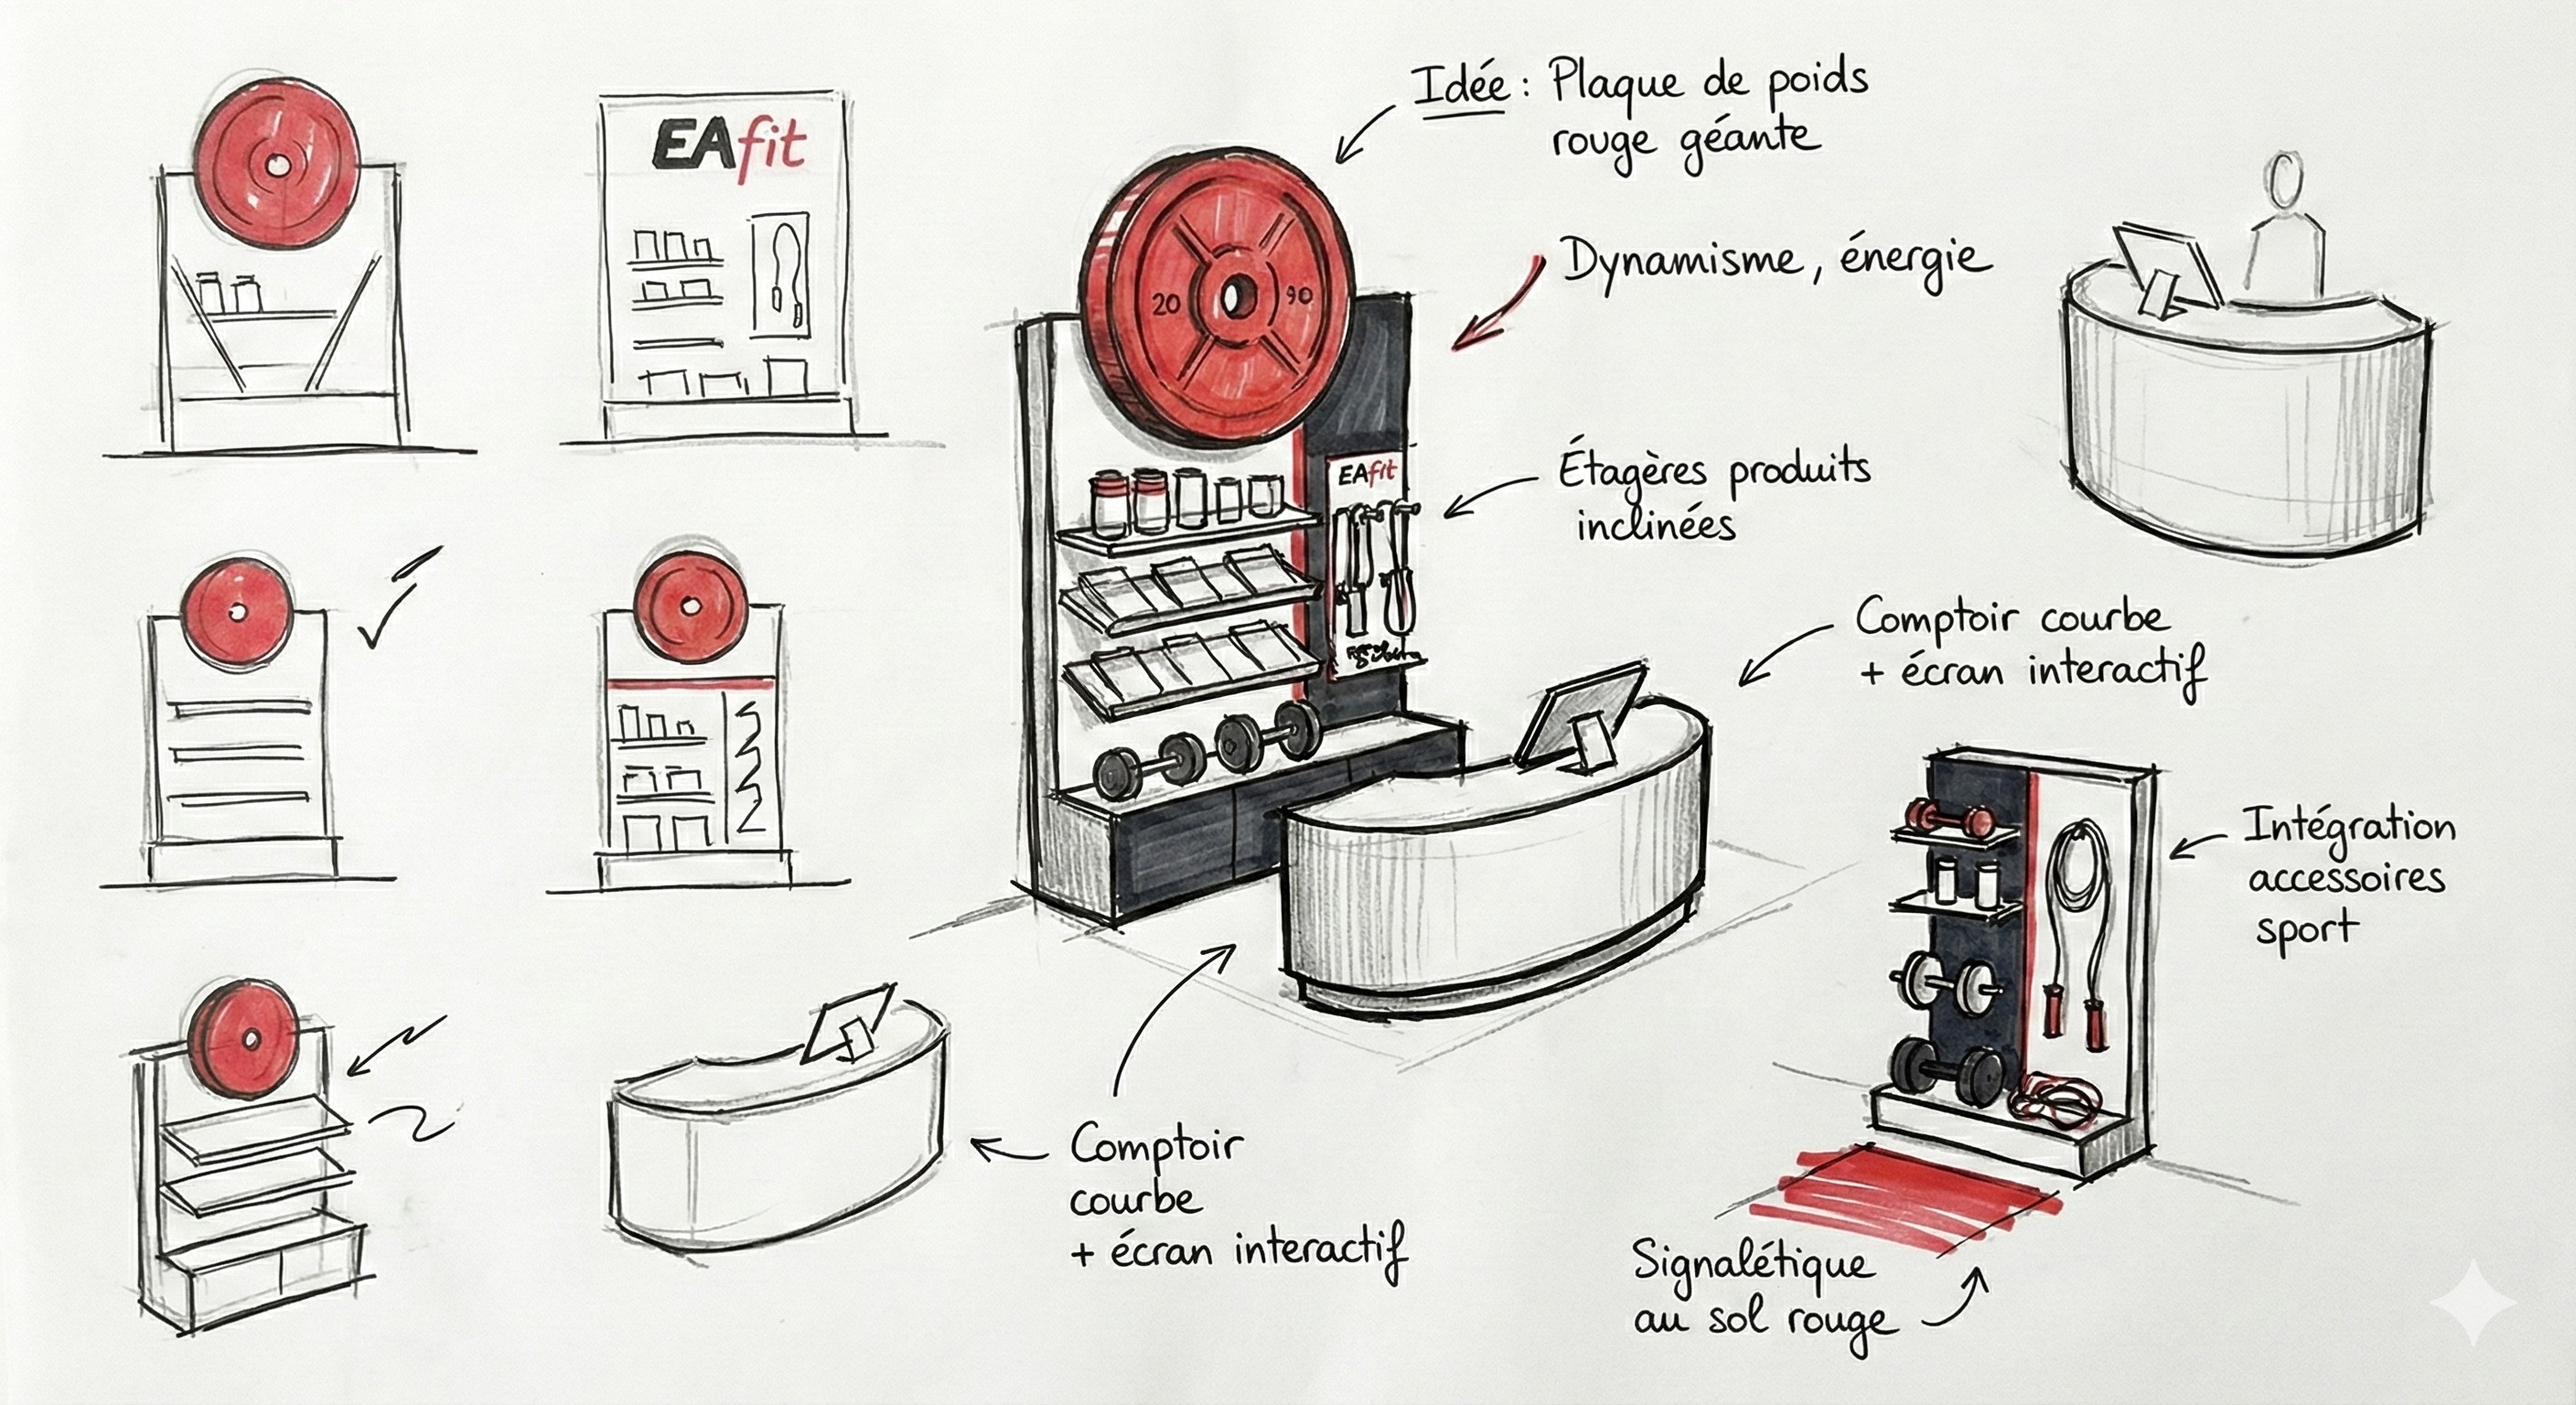 EAfit
Idée : Plaque de poids
rouge géante
Dynamisme, énergie
20 90
EAfit
Étagères produits
inclinées
Comptoir courbe
+ écran interactif
Intégration
accessoires
sport
Comptoir
courbe
+ écran interactif
Signalétique
au sol rouge